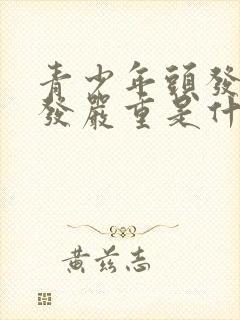 青少年頭發
發嚴重是什
黃茲志